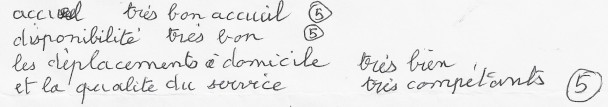 accueil très bon accueil 5
disponibilité très bon 5
les déplacements à domicile très bien
et la qualité du service très compétants 5